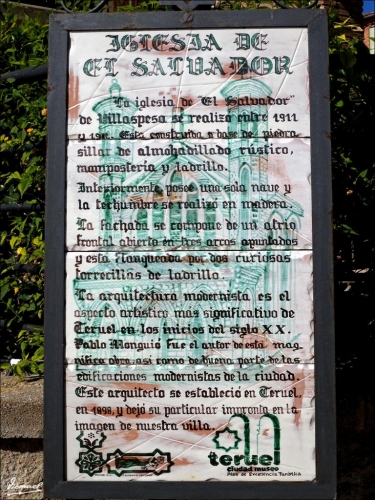 IGLESIA DE
EL SALVADOR
La iglesia de "El Salvador"
de Villaspesa se realizó entre 1911
y Está construida a base de piedra
sillar de almohadillado rústico,
mampostería y ladrillo.
Interiormente posee una sola nave y
la techumbre se realizó en madera.
La fachada se compone de un atrio
frontal abierto en tres arcos apuntados
y está flanqueada por dos curiosas
torrecillas de ladrillo.
La arquitectura modernista es el
aspecto artístico más significativo de
Teruel en los inicios del siglo XX.
Pablo Monguió fue el autor de esta mag-
nífica obra, así como de buena parte de las
edificaciones modernistas de la ciudad.
Este arquitecto se estableció en Teruel,
en 1898, y dejó su particular impronta en la
imagen de nuestra villa.
teruel
ciudad museo
Plan de Excelencia Turística